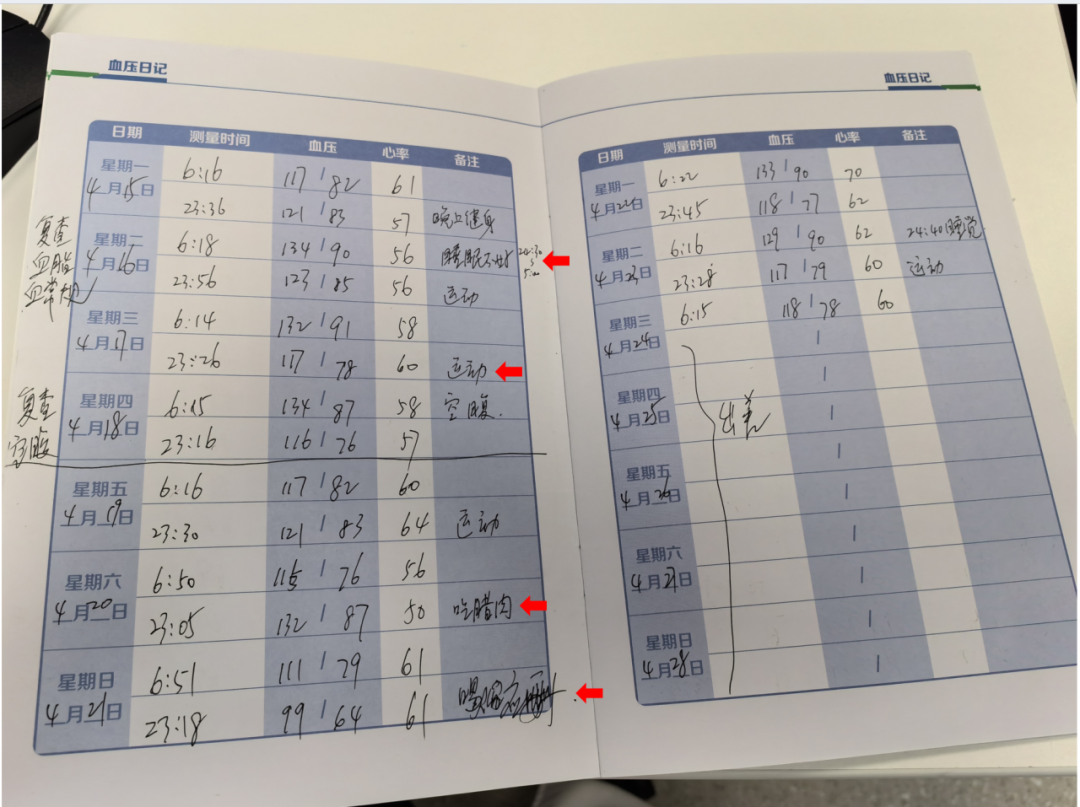 血压日记
日期 测量时间 血压 心率 备注
星期一 4月15日
6:16 117/82 61
23:36 121/83 57 晚上健身
复查
血脂
血常规
星期二 4月16日
6:18 134/90 56 睡眠不好 24:30
5:00
23:56 123/85 56 运动
星期三 4月17日
6:14 132/91 58
23:26 117/78 60 运动
复查
空腹
星期四 4月18日
6:15 134/87 58 空腹.
23:16 116/76 57
星期五 4月19日
6:16 117/82 60
23:30 121/83 64 运动
星期六 4月20日
6:50 115/76 56
23:05 132/87 50 吃腊肉
星期日 4月21日
6:51 111/79 61
23:18 99/64 61 喝酒
血压日记
日期 测量时间 血压 心率 备注
星期一 4月22日
6:22 133/90 70
23:45 118/77 62
星期二 4月23日
6:16 129/90 62 24:40睡觉
23:28 117/79 60 运动
星期三 4月24日
6:15 118/78 60
/
星期四 4月25日
/
/
出差
星期五 4月26日
/
/
星期六 4月27日
/
/
星期日 4月28日
/
/